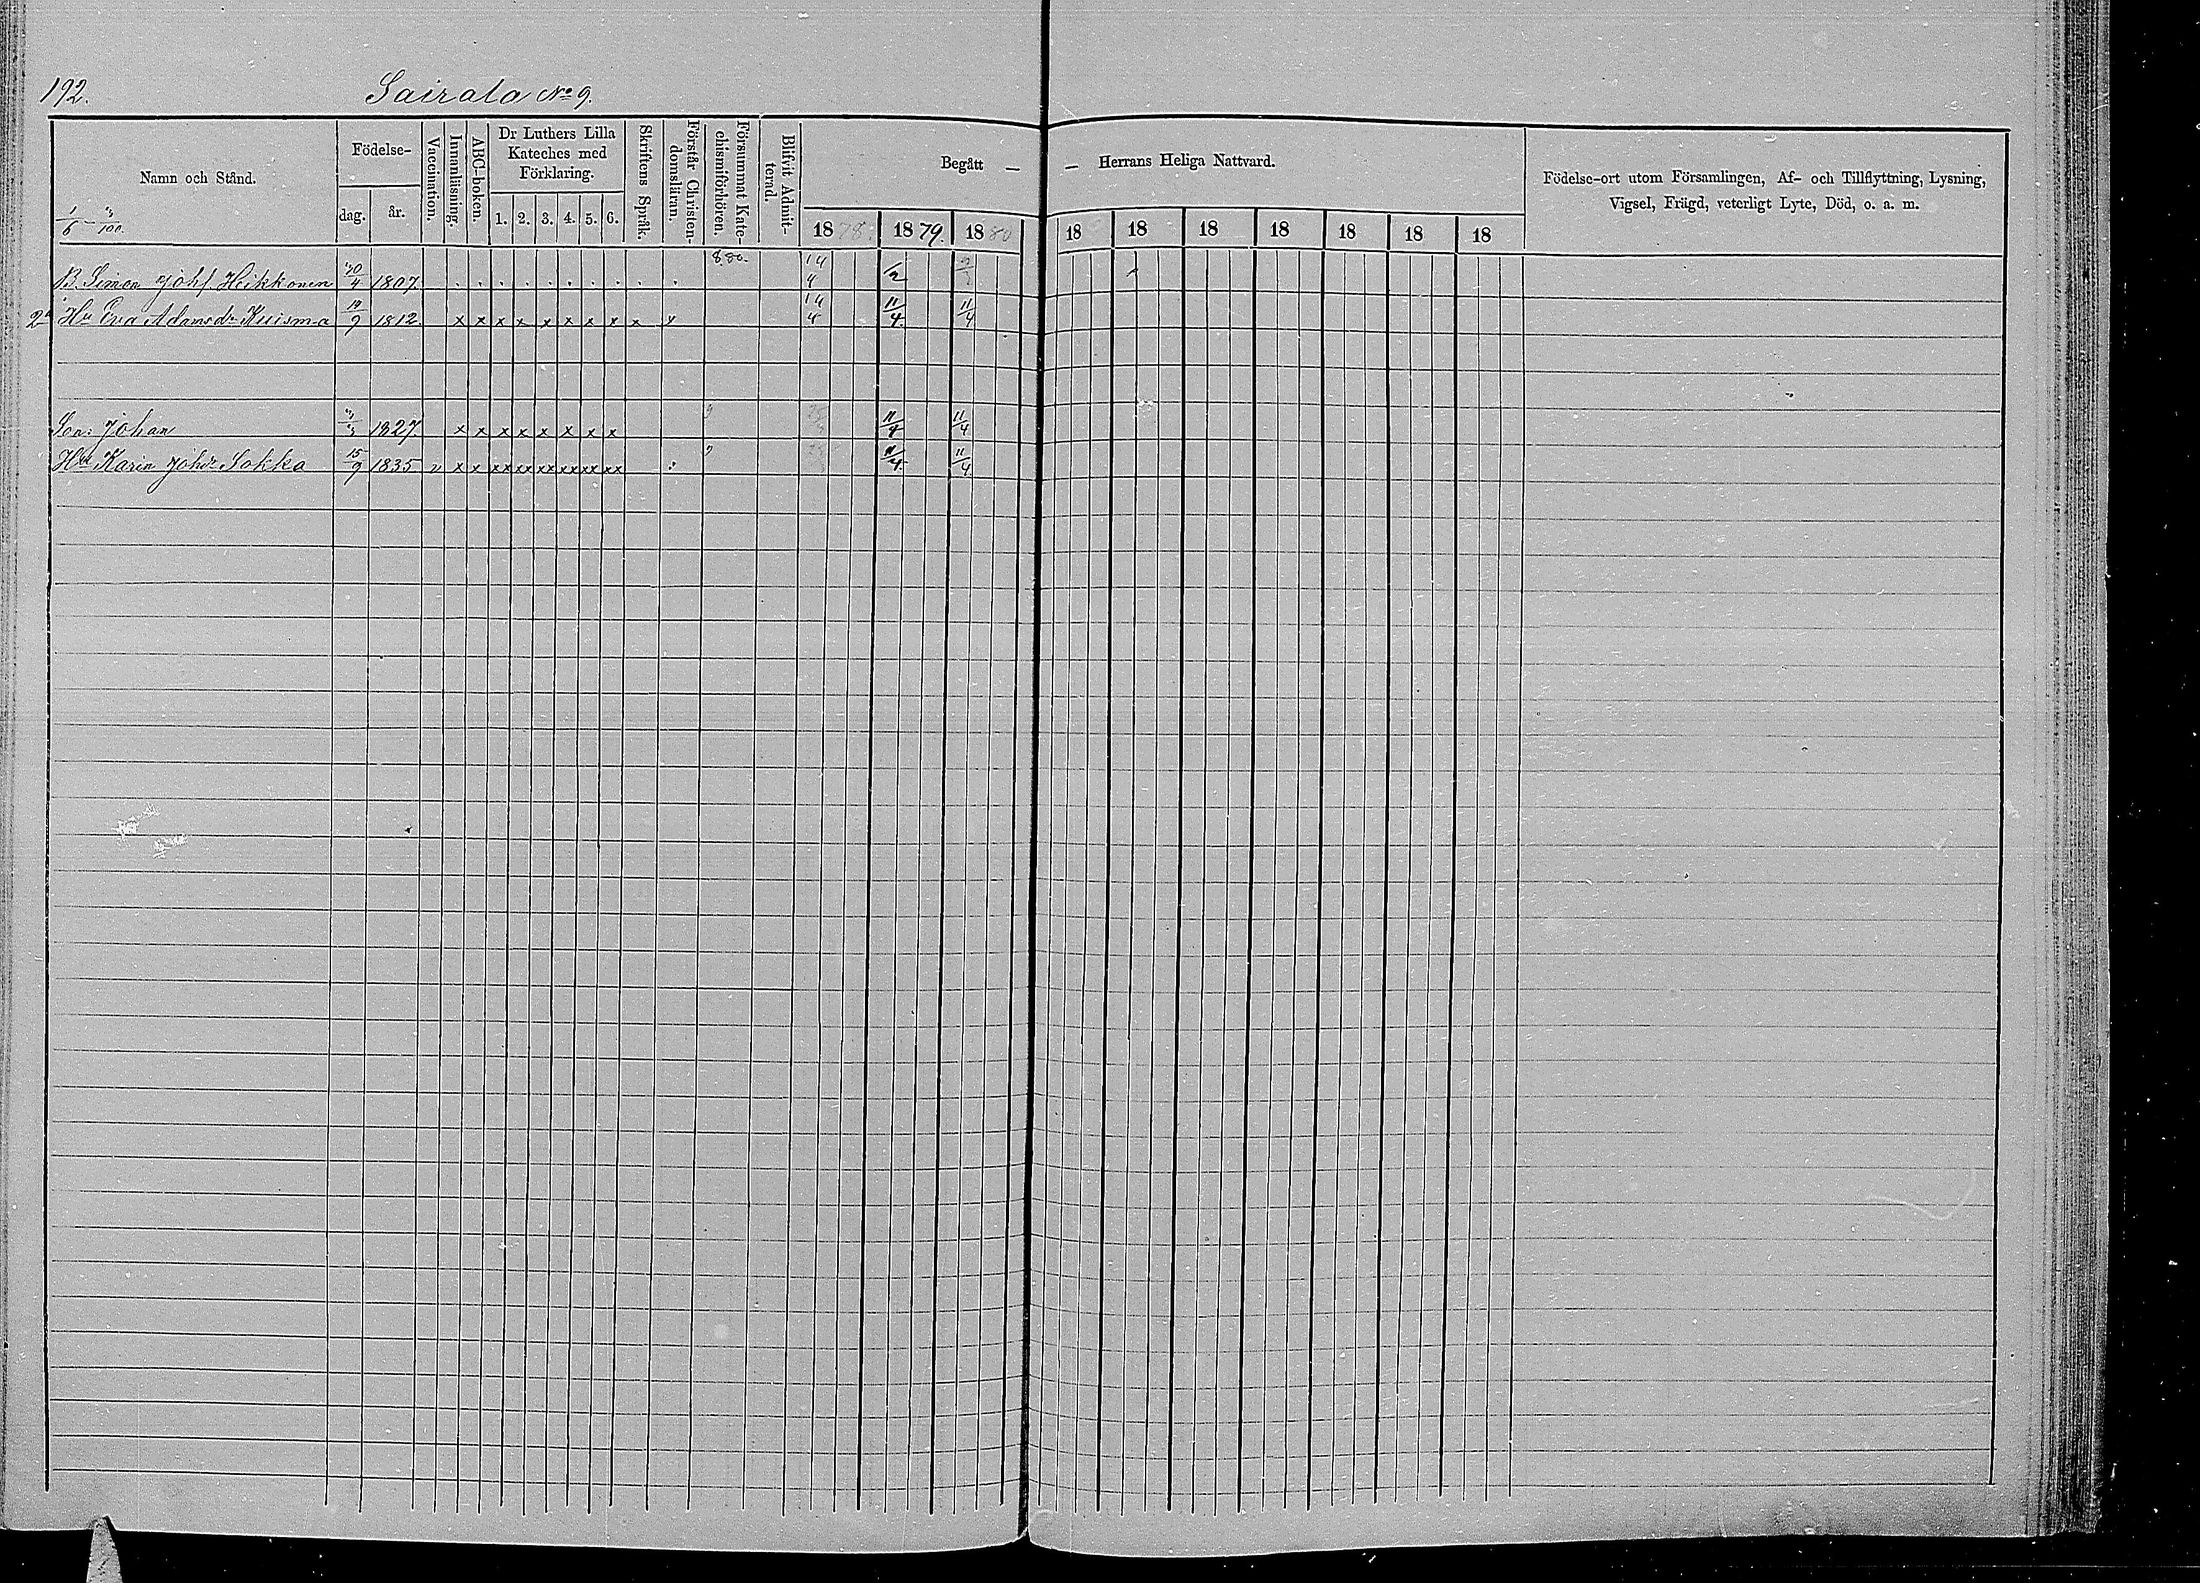 192. Sairala No 9.
Namn och Stånd.
Födelse-
dag. år.
Vaccination.
Innanläsning.
ABC-boken.
Dr Luthers Lilla
Kateches med
Förklaring.
1. 2. 3. 4. 5. 6.
Skriftens Språk.
Förstår Christen-
domsläran.
Försummat Kate-
chismiförhören.
Blifvit Admit-
terad.
Begått — — Herrans Heliga Nattvard.
1878. 1879. 1880 18 18 18 18 18 18 18
Födelse-ort utom Församlingen, Af- och Tillflyttning, Lysning,
Vigsel, Frägd, veterligt Lyte, Död, o. a. m.
B. Simon Johs. Heikkonen 30/4 1807. . . . . . . . . . . 8.80. 14/4 1/2
2a Hu Eva Adamsdr Kuisma 1812. x x x x x x x x x x 14/4 11/4. 11/4
Son: Johan 1827. x x x x x x x x 11/4 11/4
Hu Karin Johsdr Sokka 15/9 1835 v x x xx xx xx xx xx xx 11/4. 11/4.